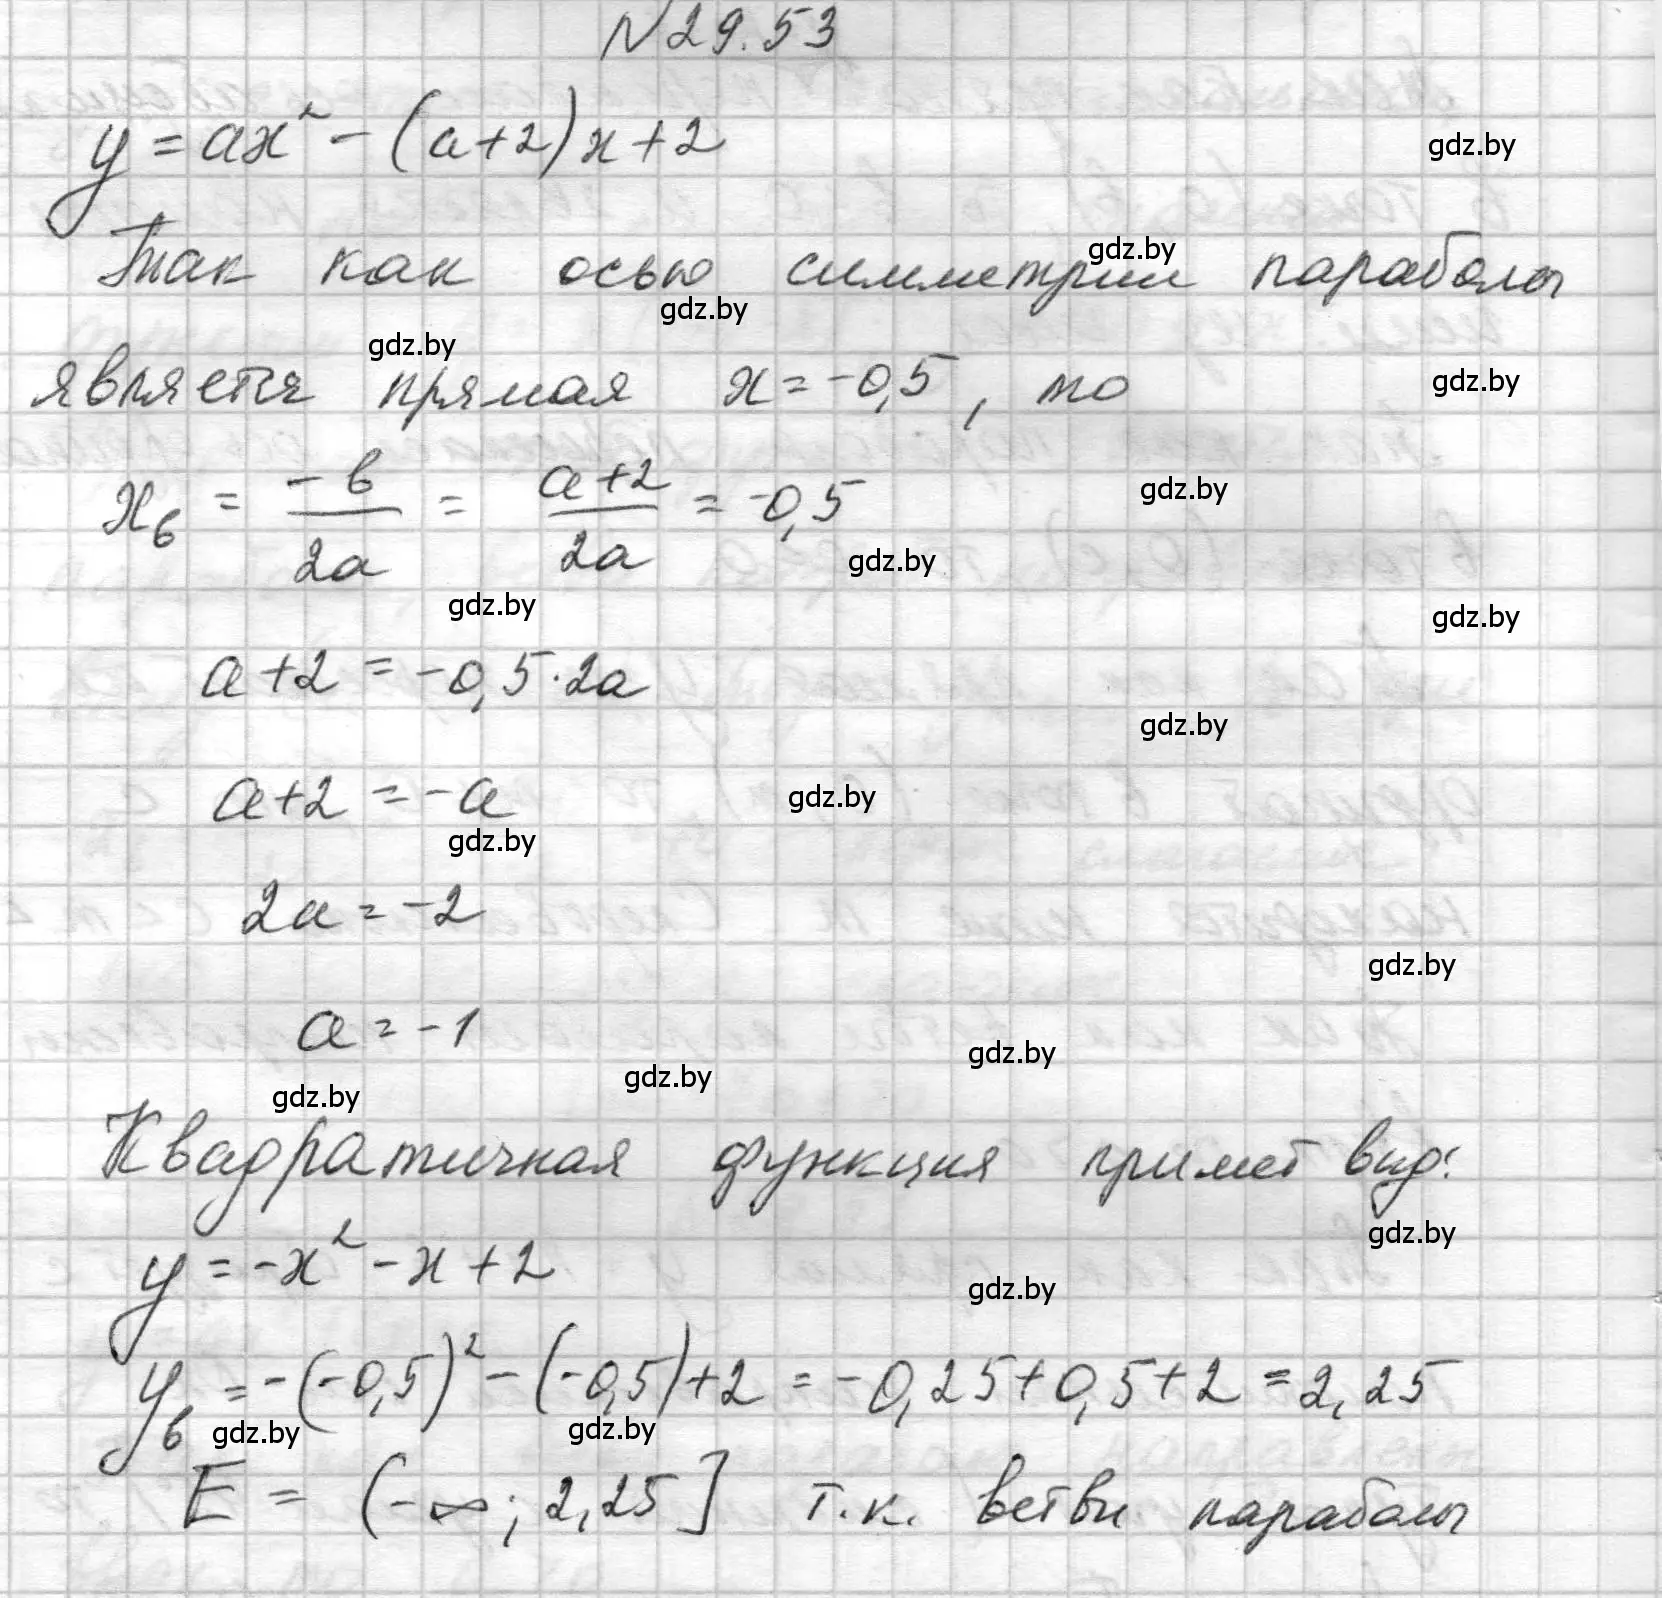 №29.53
y = ax² - (a+2)x + 2
gdz.by
Так как осью симметрии параболы
gdz.by
gdz.by
gdz.by
является прямая x = -0,5, то
gdz.by
x_в = -в/2a = (a+2)/2a = -0,5
gdz.by
gdz.by
gdz.by
gdz.by
a+2 = -0,5·2a
gdz.by
a+2 = -a
gdz.by
gdz.by
2a = -2
gdz.by
a = -1
gdz.by
gdz.by
gdz.by
Квадратичная функция примет вид:
gdz.by
y = -x² - x + 2
gdz.by
y_в = -(-0,5)² - (-0,5) + 2 = -0,25 + 0,5 + 2 = 2,25
gdz.by
gdz.by
E = (-∞; 2,25] т.к. ветви параболы